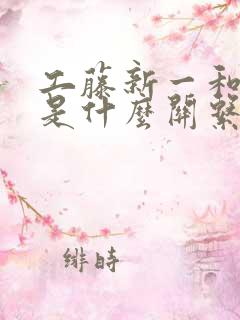 工藤新一和
是什麼關繫
緋時